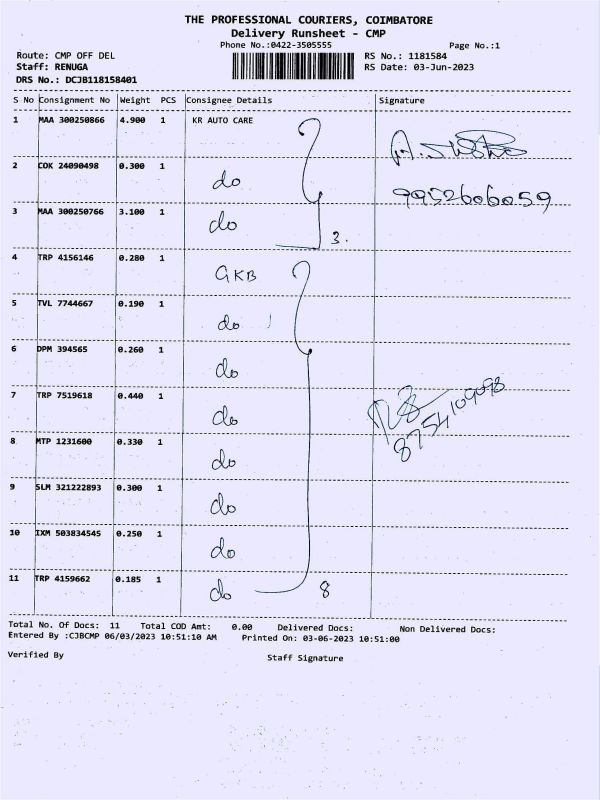 THE PROFESSIONAL COURIERS, COIMBATORE
Delivery Runsheet - CMP
Phone No.:0422-3505555 Page No.:1
Route: CMP OFF DEL RS No.: 1181584
Staff: RENUGA RS Date: 03-Jun-2023
DRS No.: DCJB118158401
S No Consignment No Weight PCS Consignee Details Signature
1 MAA 300250866 4.900 1 KR AUTO CARE
2 COK 24090498 0.300 1 do 9952606059
3 MAA 300250766 3.100 1 do 3.
4 TRP 4156146 0.280 1 GKB
5 TVL 7744667 0.190 1 do
6 DPM 394565 0.260 1 do
7 TRP 7519618 0.440 1 do 8754109098
8 MTP 1231600 0.330 1 do
9 SLM 321222893 0.300 1 do
10 IXM 503834545 0.250 1 do
11 TRP 4159662 0.185 1 do 8
Total No. Of Docs: 11 Total COD Amt: 0.00 Delivered Docs: Non Delivered Docs:
Entered By :CJBCMP 06/03/2023 10:51:10 AM Printed On: 03-06-2023 10:51:00
Verified By Staff Signature